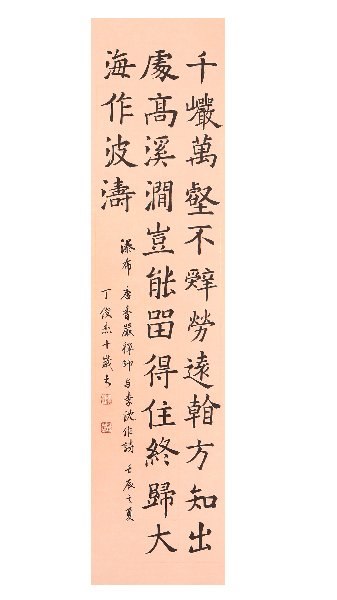 千巗萬壑不辤勞遠看方知出
處髙溪澗豈能畱得住終歸大
海作波濤
瀑布 唐香嚴禪師与李忱作詩 壬辰之夏
丁俊杰十歲書